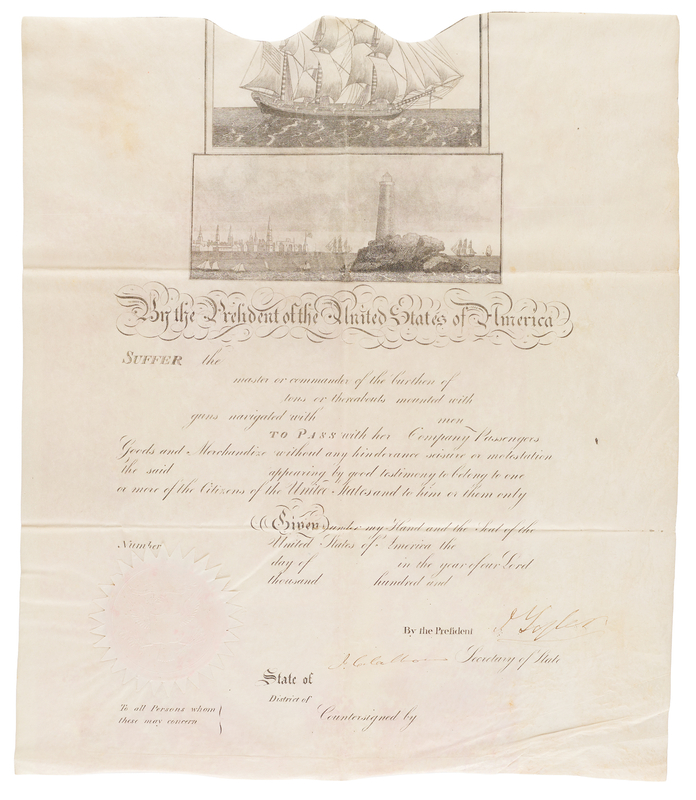 By the President of the United States of America
SUFFER the
master or commander of the burthen of
tons or thereabouts mounted with
guns navigated with men
TO PASS with her Company Passengers
Goods and Merchandize without any hinderance seisure or molestation
the said appearing by good testimony to belong to one
or more of the Citizens of the United States and to him or them only
Given under my Hand and the Seal of the
Number United States of America the
day of in the year of our Lord
thousand hundred and
By the President J. Tyler
J. C. Calhoun Secretary of State
State of
District of
To all Persons whom
these may concern
Countersigned by